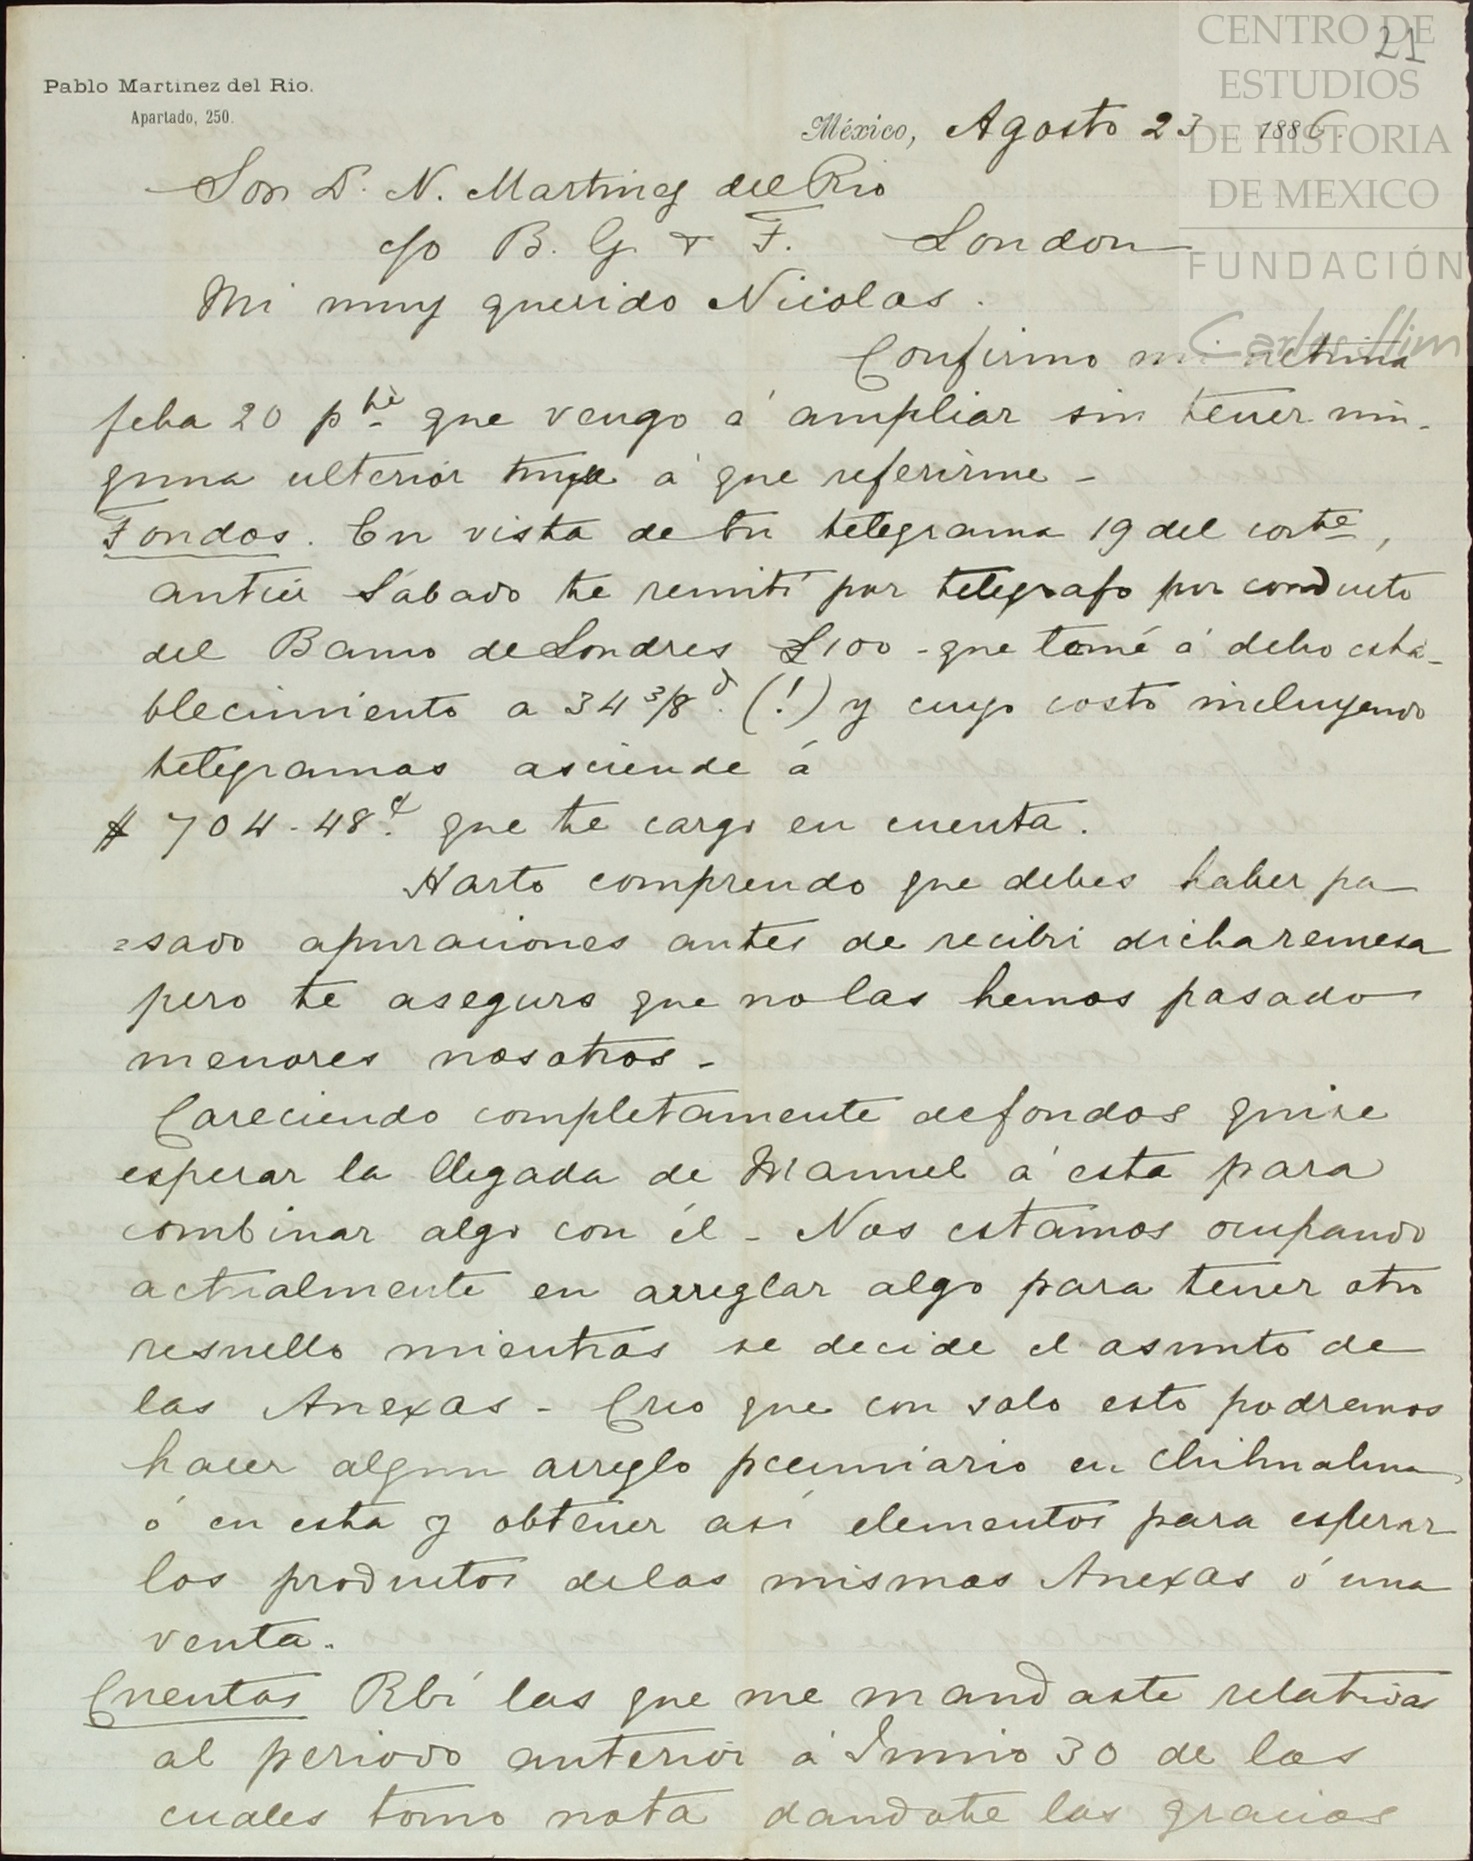 CENTRO DE
ESTUDIOS
DE HISTORIA
DE MEXICO
FUNDACIÓN
Carlos Slim
21
Pablo Martinez del Rio.
Apartado, 250.
México, Agosto 23 1886.
Sor D. N. Martinez del Rio
c/o B. G. & F. London
Mi muy querido Nicolas.
Confirmo mi última
fcha 20 pte que vengo á ampliar sin tener nin-
guna ulterior tuya á que referirme -
Fondos. En vista de tu telegrama 19 del corte,
antier Sábado te remití por telégrafo por conducto
del Banco de Londres £100 - que tomé á dcho esta-
blecimiento a 34 3/8 d. (!) y cuyo costo incluyendo
telegramas asciende á
$ 704.48 c. que te cargo en cuenta.
Harto comprendo que debes haber pa-
=sado apuraciones antes de recibir dicha remesa
pero te aseguro que no las hemos pasado
menores nosotros -
Careciendo completamente de fondos quise
esperar la llegada de Manuel á esta para
combinar algo con él - Nos estamos ocupando
actualmente en arreglar algo para tener otro
resuello mientras se decide el asunto de
las Anexas - Creo que con solo esto podremos
hacer algun arreglo pecuniario en Chihuahua
ó en esta y obtener así elementos para esperar
los productos de las mismas Anexas ó una
venta.
Cuentas Rbí las que me mandaste relativas
al periodo anterior á Junio 30 de las
cuales tomo nota dandote las gracias